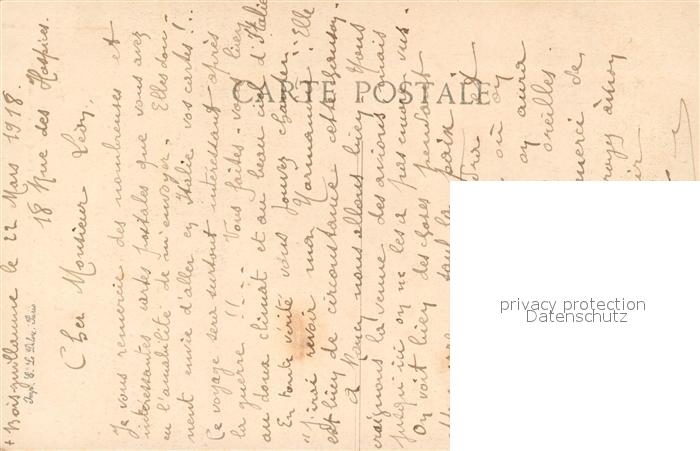 Boisguillaume le 22 Mars 1918.
18 Rue des Hospices.
Cher Monsieur Léon,
Je vous remercie des nombreuses et
intéressantes cartes postales que vous avez
eu l'amabilité de m'envoyer. Elles don-
nent envie d'aller en Italie vos cartes!..
Ce voyage sera surtout intéressant après
la guerre!!.. Vous faites-vous bien
au doux climat et au beau ciel d'Italie
En toute vérité vous pouvez chanter:
"J'irai revoir ma Normandie". Elle
est bien de circonstance cette chanson.
A Rouen nous allons bien. Nous
craignons la venue des avions mais
jusqu'ici on ne les a pas encore vus.
On voit bien des choses pendant
la paix
on
où
on aura
oreilles.
merci de
CARTE POSTALE
Imp. E. Le Deley, Paris
privacy protection
Datenschutz